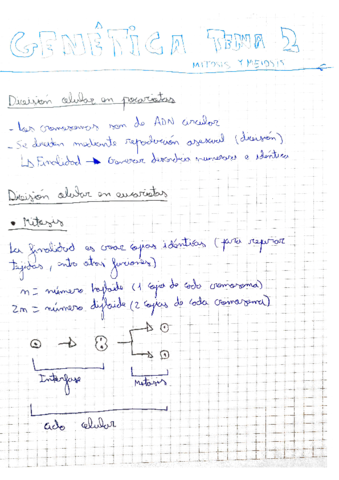 GENÉTICA TEMA 2
MITOSIS Y MEIOSIS
División celular en procariotas
- Los cromosomas son de ADN circular
- Se dividen mediante reproducción asexual (división)
↳ Finalidad → Generar descendencia numerosa e idéntica
División celular en eucariotas
• Mitosis
La finalidad es crear copias idénticas (para reparar
tejidos, entre otras funciones)
n = número haploide (1 copia de cada cromosoma)
2n = número diploide (2 copias de cada cromosoma)
Interfase
Mitosis
ciclo celular